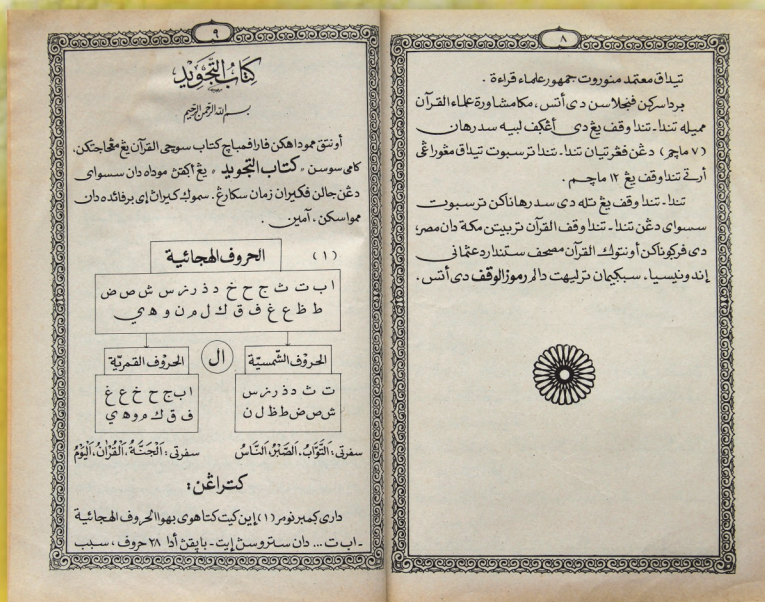 ٨
تيداق معتمد منوروت جمهور علماء قراءة .
برداسركن فنجلاسن دي أتس ، مكا مشاورة علماء القرآن
مميله تندا ـ تندا وقف يڠ دي أڠكف لبيه سدرهان
(٧ ماچم) دڠن فڠرتيان تندا ـ تندا ترسبوت تيداق مڠوراڠي
أرتي تندا وقف يڠ ١٢ ماچم .
تندا ـ تندا وقف يڠ تله دي سدرهاناكن ترسبوت
سسواي دڠن تندا ـ تندا وقف القرآن تربيتن مكة دان مصر ،
دي فركوناكن أونتوك القرآن مصحف ستندارد عثماني
إندونيسيا ، سبكيمان ترليهت دالم رموز الوقف دي أتس .
٩
كتاب التجويد
بسم الله الرحمن الرحيم
أونتق ممودهكن فارا فمباچ كتاب سوچي القرآن يڠ مڠهاجتكن ،
كامي سوسن " كتاب التجويد " يڠ أكن موداه دان سسواي
دڠن جالن فكيران زمان سكارڠ . سموك كيراڽ إي برفائده دان
ممواسكن . آمين .
(١) الحروف الهجائية
ا ب ت ث ج ح خ د ذ ر ز س ش ص ض
ط ظ ع غ ف ق ك ل م ن و ه ي
الحروف الشمسيّة ال الحروف القمريّة
ت ث د ذ ر ز س
ش ص ض ط ظ ل ن
ا ب ج ح خ ع غ
ف ق ك م و ه ي
سفرتي : اَلتَّوَّابُ ، اَلصَّبْرُ ، اَلنَّاسُ
سفرتي : اَلْجَنَّةُ ، اَلْقُرْاٰنُ ، اَلْيَوْمُ
كتراڠن :
داري كمبر نومر (١) إين كيت كتاهوي بهوا الحروف الهجائية
ـ ا ب ت ... دان ستروسڽ إيت ـ باڽقڽ أدا ٢٨ حروف ، سبب